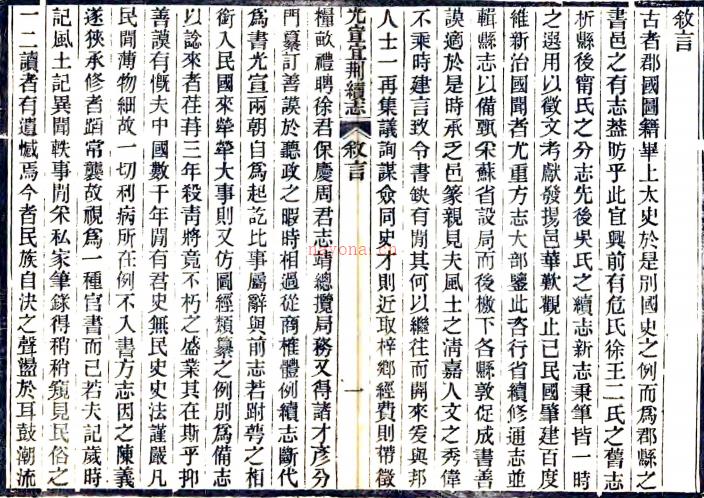 敘言
古者郡國圖籍畢上太史於是別國史之例而爲郡縣之
書邑之有志葢昉乎此宜興前有危氏徐王二氏之舊志
析縣後甯氏之分志先後吳氏之續志新志秉筆皆一時
之選用以徵文考獻發揚邑華歎觀止已民國肇建百度
維新治國聞者尤重方志大部鑒此咨行省續修通志並
輯縣志以備甄采蘇省設局而後檄下各縣敦促成書善
謨適於是時承乏邑篆親見夫風土之清嘉人文之秀偉
不乘時建言致令書缺有閒其何以繼往而開來爰與邦
人士一再集議詢謀僉同史才則近取梓鄉經費則帶徵
光宣宜荆續志
敘言
一
糧畝禮聘徐君保慶周君志靖總攬局務又得諸才彥分
門纂訂善謨於聽政之暇時相過從商榷體例續志斷代
爲書光宣兩朝自爲起訖比事屬辭與前志若跗萼之相
銜入民國來犖犖大事則又仿圖經類纂之例別爲備志
以諗來者荏苒三年殺靑將竟不朽之盛業其在斯乎抑
善謨有慨夫中國數千年閒有君史無民史史法謹嚴凡
民閒薄物細故一切利病所在例不入書方志因之陳義
遂狹承修者蹈常襲故視爲一種官書而已若夫記歲時
記風土記異聞軼事閒采私家筆錄得稍稍窺見民俗之
一二讀者有遺憾焉今者民族自決之聲盪於耳鼓潮流
navona.cn